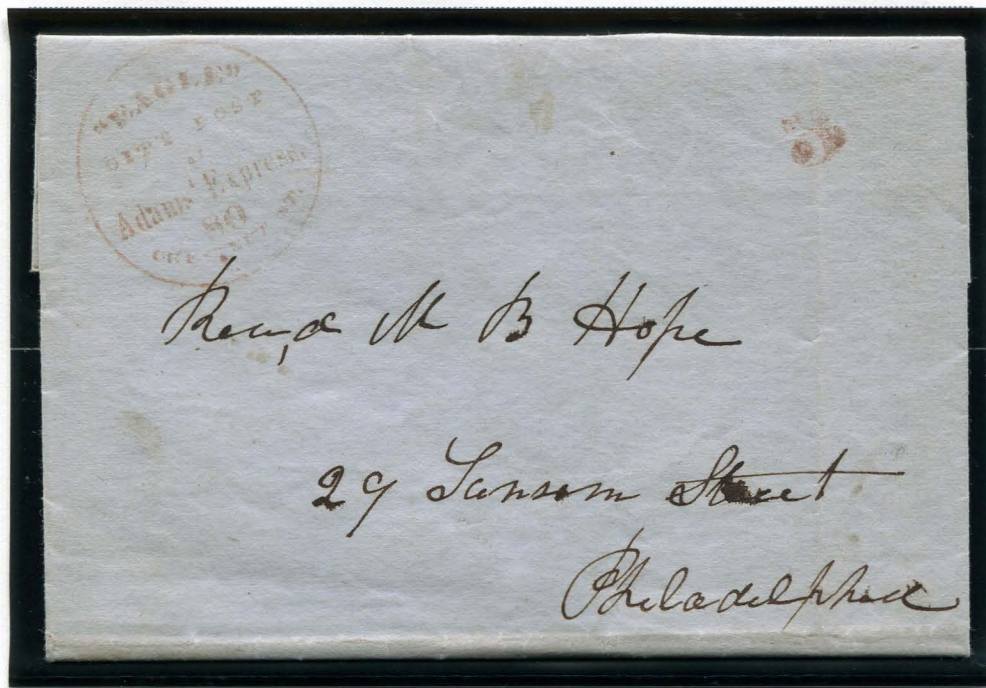 "EAGLE"
CITY POST
at
Adams' Express.
80
CHESTNUT ST.
Rev,d M B Hope
29 Sansom Street
Philadelphia